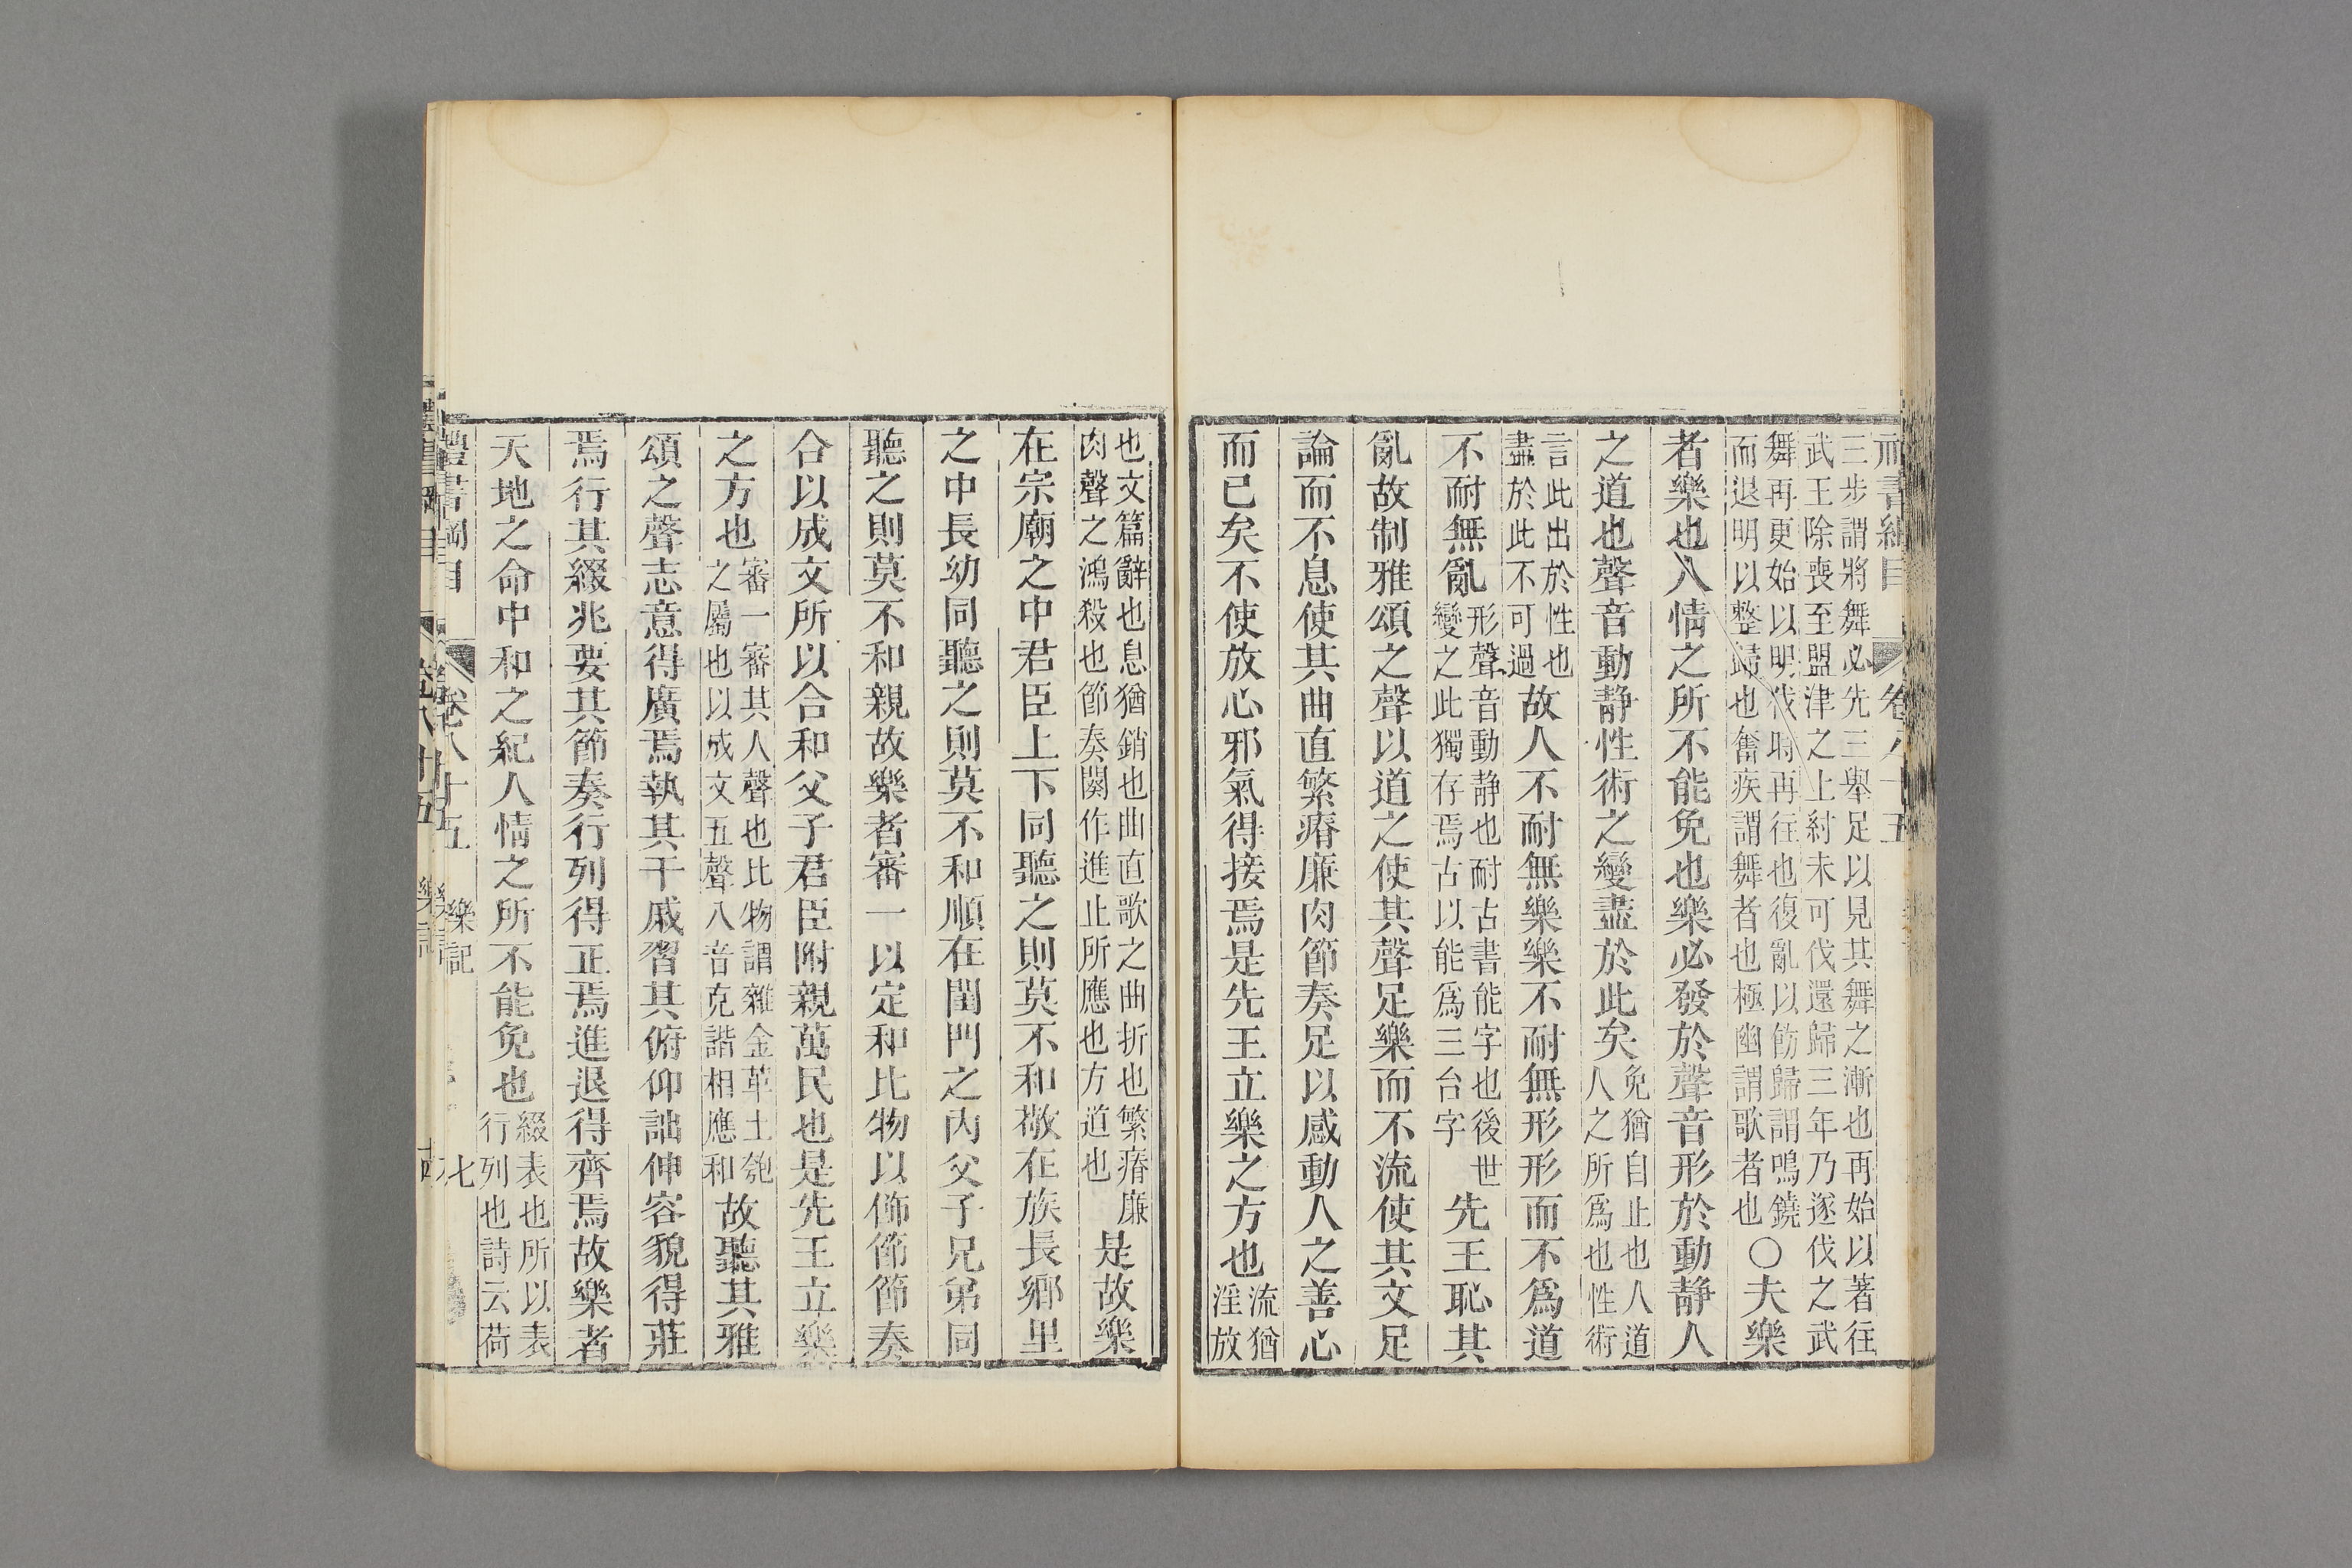 禮書綱目 卷八十五
三步謂將舞必先三舉足以見其舞之漸也再始以著往
武王除喪至盟津之上紂未可伐還歸三年乃遂伐之武
舞再更始以明伐時再往也復亂以飭歸謂鳴鐃
而退明以整歸也奮疾謂舞者也極幽謂歌者也〇夫樂
者樂也人情之所不能免也樂必發於聲音形於動靜人
之道也聲音動靜性術之變盡於此矣免猶自止也人道
人之所爲也性術
言此出於性也
盡於此不可過故人不耐無樂樂不耐無形形而不爲道
不耐無亂形聲音動靜也耐古書能字也後世
變之此獨存焉古以能爲三台字先王恥其
亂故制雅頌之聲以道之使其聲足樂而不流使其文足
論而不息使其曲直繁瘠廉肉節奏足以感動人之善心
而已矣不使放心邪氣得接焉是先王立樂之方也流猶
淫放
也文篇辭也息猶銷也曲直歌之曲折也繁瘠廉
肉聲之鴻殺也節奏闋作進止所應也方道也是故樂
在宗廟之中君臣上下同聽之則莫不和敬在族長鄉里
之中長幼同聽之則莫不和順在閨門之內父子兄弟同
聽之則莫不和親故樂者審一以定和比物以飾節節奏
合以成文所以合和父子君臣附親萬民也是先王立樂
之方也審一審其人聲也比物謂雜金革土匏
之屬也以成文五聲八音克諧相應和故聽其雅
頌之聲志意得廣焉執其干戚習其俯仰詘伸容貌得莊
焉行其綴兆要其節奏行列得正焉進退得齊焉故樂者
天地之命中和之紀人情之所不能免也綴表也所以表
行列也詩云荷
禮書綱目 卷八十五 樂記 七